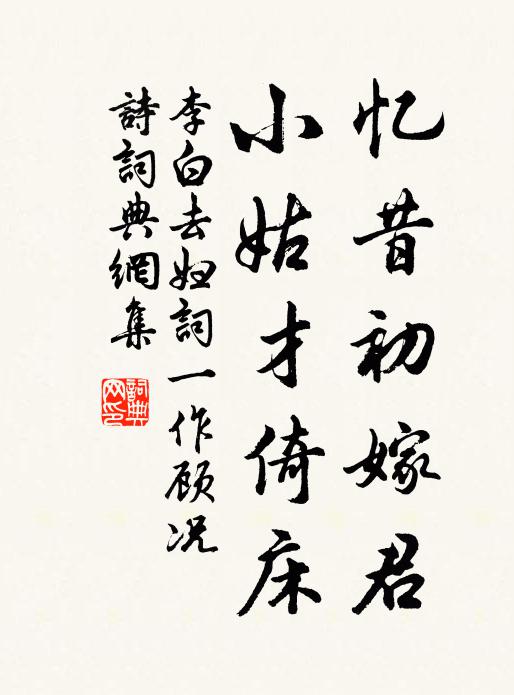 忆昔初嫁君
小姑才倚床
李白去妇詞一作顾况
詩詞典網集
詞典網印